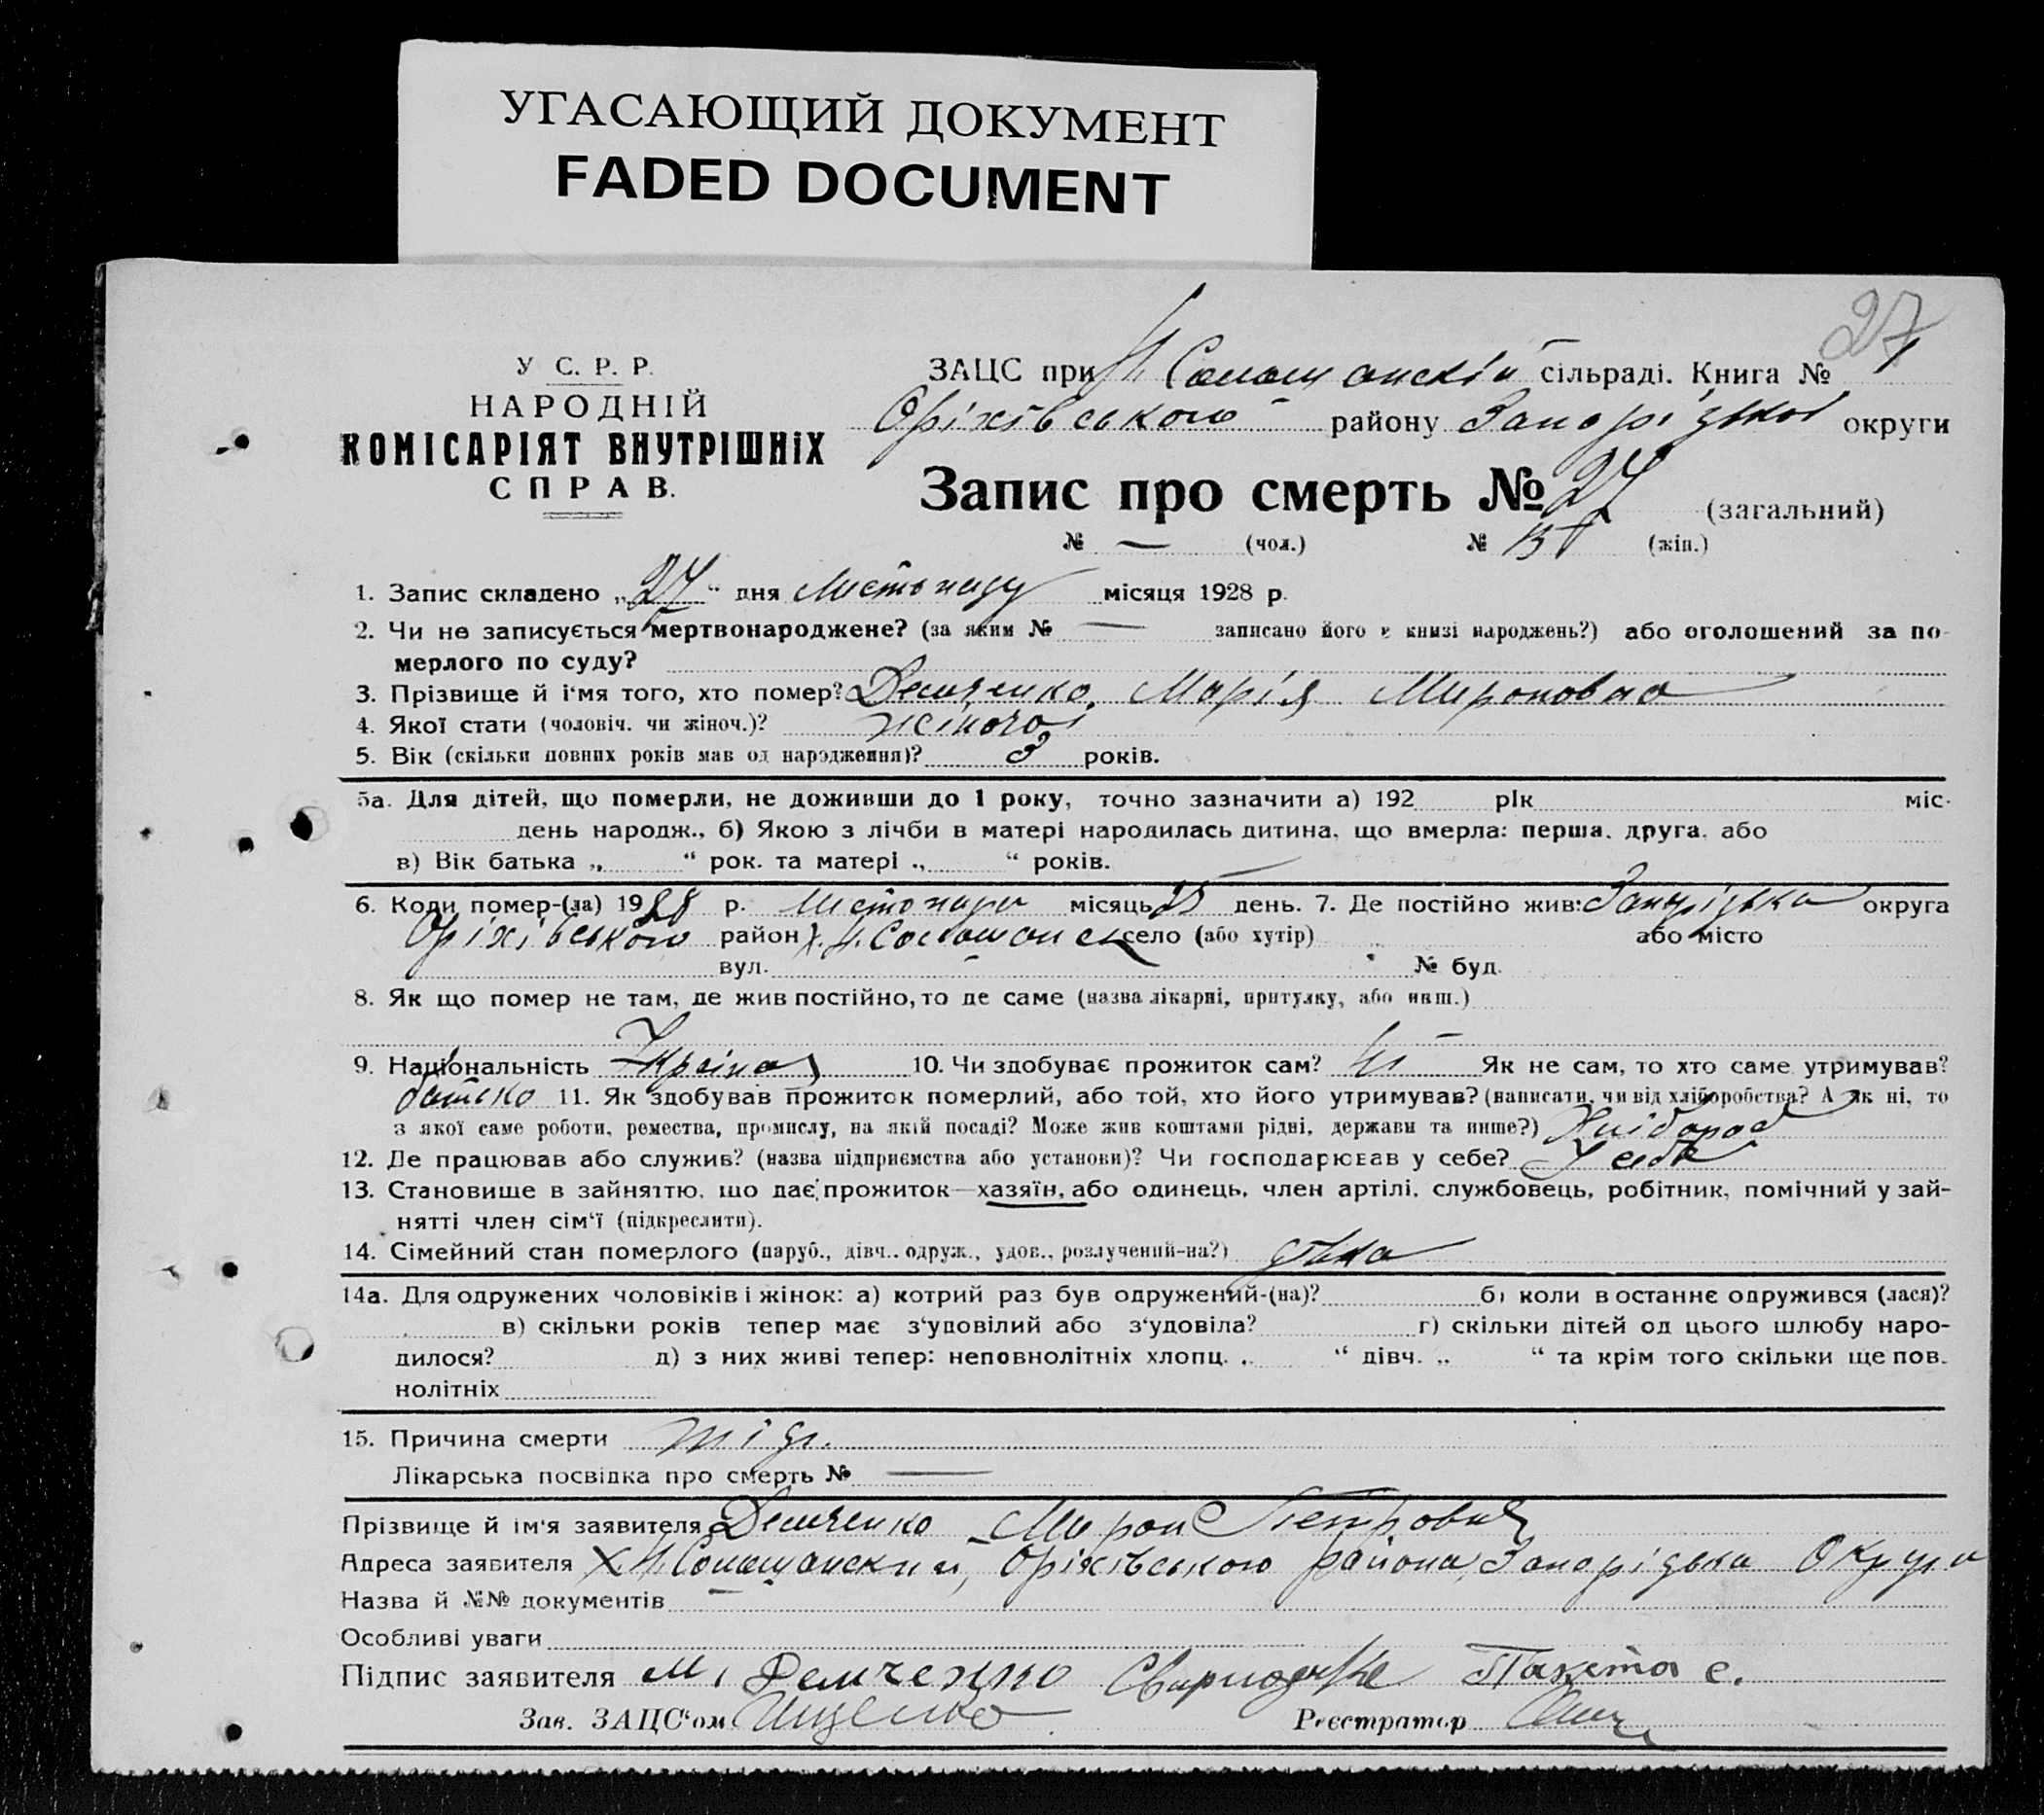 УГАСАЮЩИЙ ДОКУМЕНТ
FADED DOCUMENT
27
У С. Р. Р.
НАРОДНІЙ
КОМІСАРІЯТ ВНУТРІШНІХ
СПРАВ.
ЗАЦС при сільраді. Книга № 1
Оріхівського району Запорізької округи
Запис про смерть № 27 (загальний)
№ — (чол.) № (жін.)
1. Запис складено „27“ дня Листопаду місяця 1928 р.
2. Чи не записується мертвонароджене? (за яким № — записано його в книзі народжень?) або оголошений за по-
мерлого по суду?
3. Прізвище й і'мя того, хто помер? Демченко, Марія Мироновна
4. Якої стати (чоловіч. чи жіноч.)? жіночої
5. Вік (скільки повних років мав од народження)? 3 років.
5а. Для дітей, що померли, не доживши до 1 року, точно зазначити а) 192 рік міс.
день народж., б) Якою з лічби в матері народилась дитина, що вмерла: перша, друга, або
в) Вік батька „ “ рок. та матері „ “ років.
6. Коли помер-(ла) 1928 р. Листопада місяць 25 день. 7. Де постійно жив: Запорізька округа
Оріхівського район село (або хутір) або місто
вул. № буд.
8. Як що помер не там, де жив постійно, то де саме (назва лікарні, притулку, або инш.)
9. Національність 10. Чи здобуває прожиток сам? ні Як не сам, то хто саме утримував?
батько 11. Як здобував прожиток померлий, або той, хто його утримував? (написати, чи від хліборобства? А як ні, то
з якої саме роботи, ремества, промислу, на якій посаді? Може жив коштами рідні, держави та инше?)
12. Де працював або служив? (назва підприємства або установи)? Чи господарював у себе? У себе
13. Становище в зайняттю, що дає прожиток—хазяїн, або одинець, член артілі, службовець, робітник, помічний у зай-
нятті член сім'ї (підкреслити).
14. Сімейний стан померлого (паруб., дівч., одруж., удов., розлучений-на?)
14а. Для одружених чоловіків і жінок: а) котрий раз був одружений-(на)? б) коли в останнє одружився (лася)?
в) скільки років тепер має з'удовілий або з'удовіла? г) скільки дітей од цього шлюбу наро-
дилося? д) з них живі тепер: неповнолітніх хлопц. „ “ дівч. „ “ та крім того скільки ще пов.
нолітніх
15. Причина смерти
Лікарська посвідка про смерть № —
Прізвище й ім'я заявителя Демченко Мирон Петрович
Адреса заявителя Оріхівського района, Запорізька Округа
Назва й №№ документів
Особливі уваги
Підпис заявителя М. Демченко
Зав. ЗАЦС'ом Ищенко Реєстратор